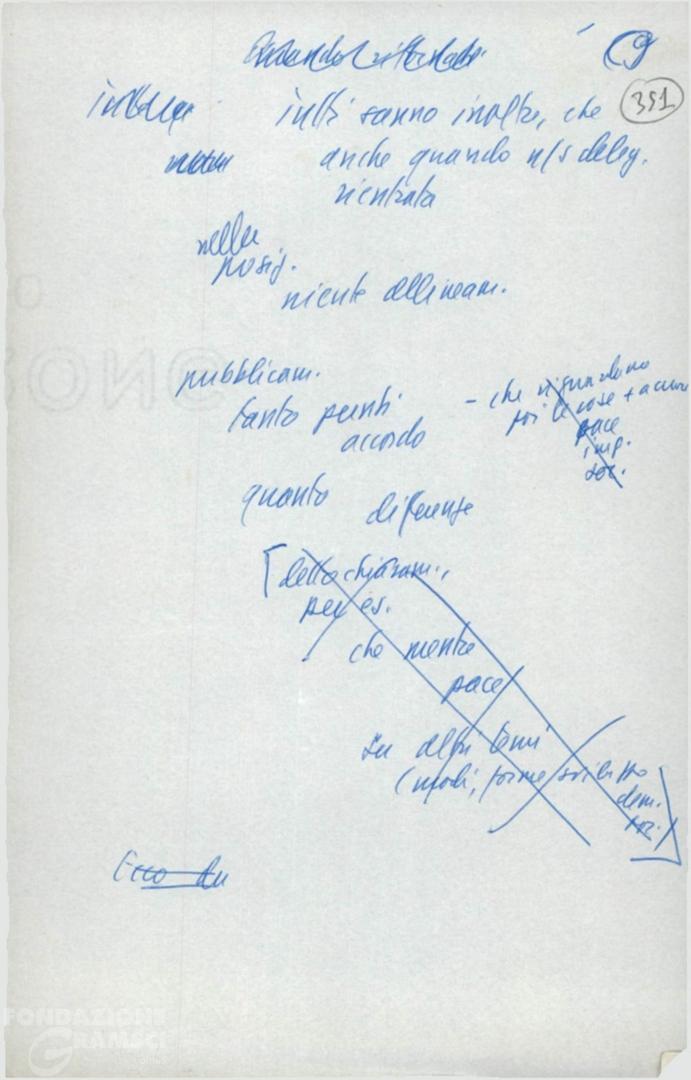 (9
351
tutti sanno inoltre, che
anche quando n/s deleg.
rientrata
nelle
posiz.
niente allineam.
pubblicam.
tanto punti
accordo
- che riguardano
poi le cose + acute
pace
imp.
soc.
quanto
differenze
[detto chiaram.,
per es.
che mentre
pace
su altri temi
(modi, forme sviluppo
dem.
soc.)]
Ecco du
FONDAZIONE
GRAMSCI